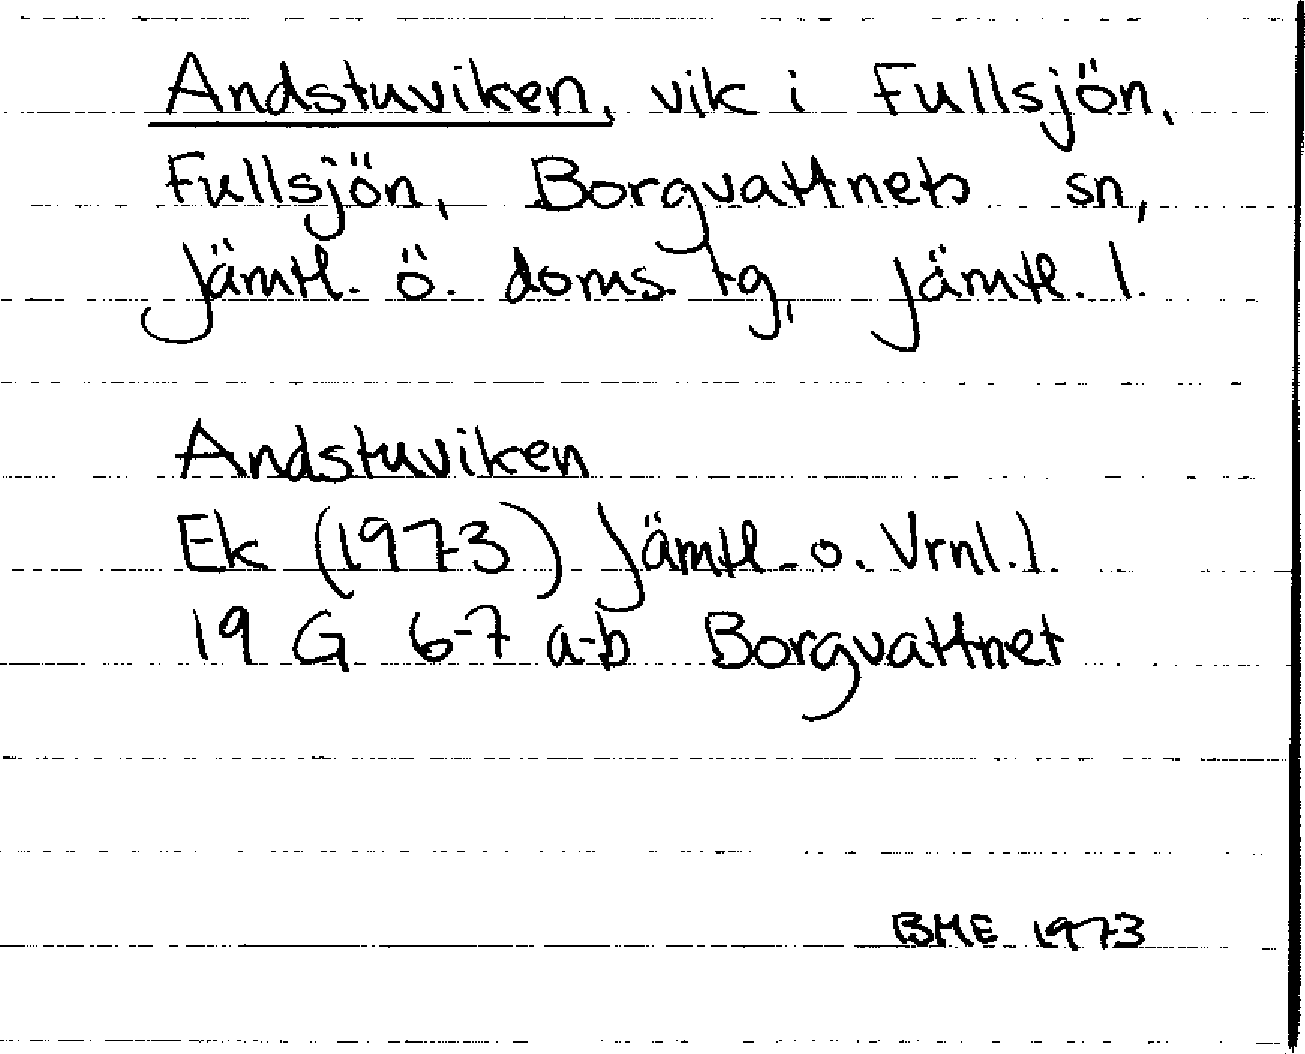 Andstuviken, vik i Fullsjön,
Fullsjön, Borgvattnets sn,
Jämtl. ö. doms. tg, Jämtl. l.
Andstuviken
Ek (1973) Jämtl. o. Vrnl. l.
19 G 6-7 a-b Borgvattnet
BME 1973